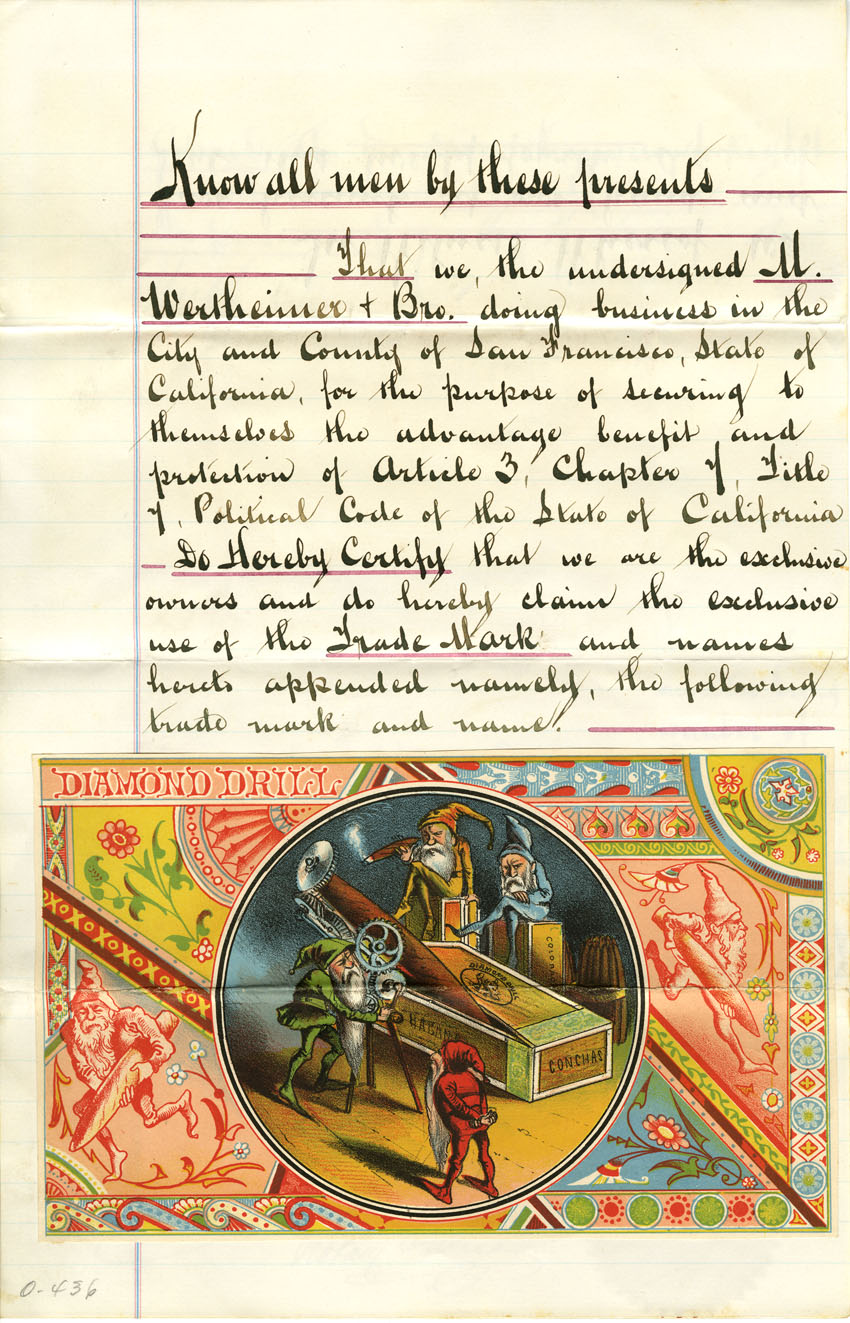 Know all men by these presents
That we, the undersigned M.
Wertheimer & Bro. doing business in the
City and County of San Francisco, State of
California, for the purpose of securing to
themselves the advantage benefit and
protection of Article 3, Chapter 7, Title
7, Political Code of the State of California
Do Hereby Certify that we are the exclusive
owners and do hereby claim the exclusive
use of the Trade Mark and names
hereto appended namely, the following
trade mark and name.
DIAMOND DRILL
DIAMOND DRILL
HABANA
CONCHAS
O-436